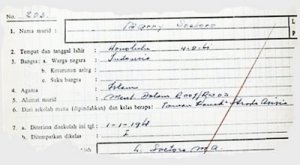 No. 203.
1. Nama murid : Barry Soetoro L P
2. Tempat dan tanggal lahir : Honolulu 4-8-61
3. Bangsa : a. Warga negara : Indonesia
b. Keturunan asing :
c. Suku bangsa :
4. Agama : Islam
5. Alamat murid :
6. Dari sekolah mana (dipindahkan) dan kelas berapa :
7. a. Diterima disekolah ini tgl. : 1-1-1968
b. Ditempatkan dikelas : I
L. Soetoro M.A.